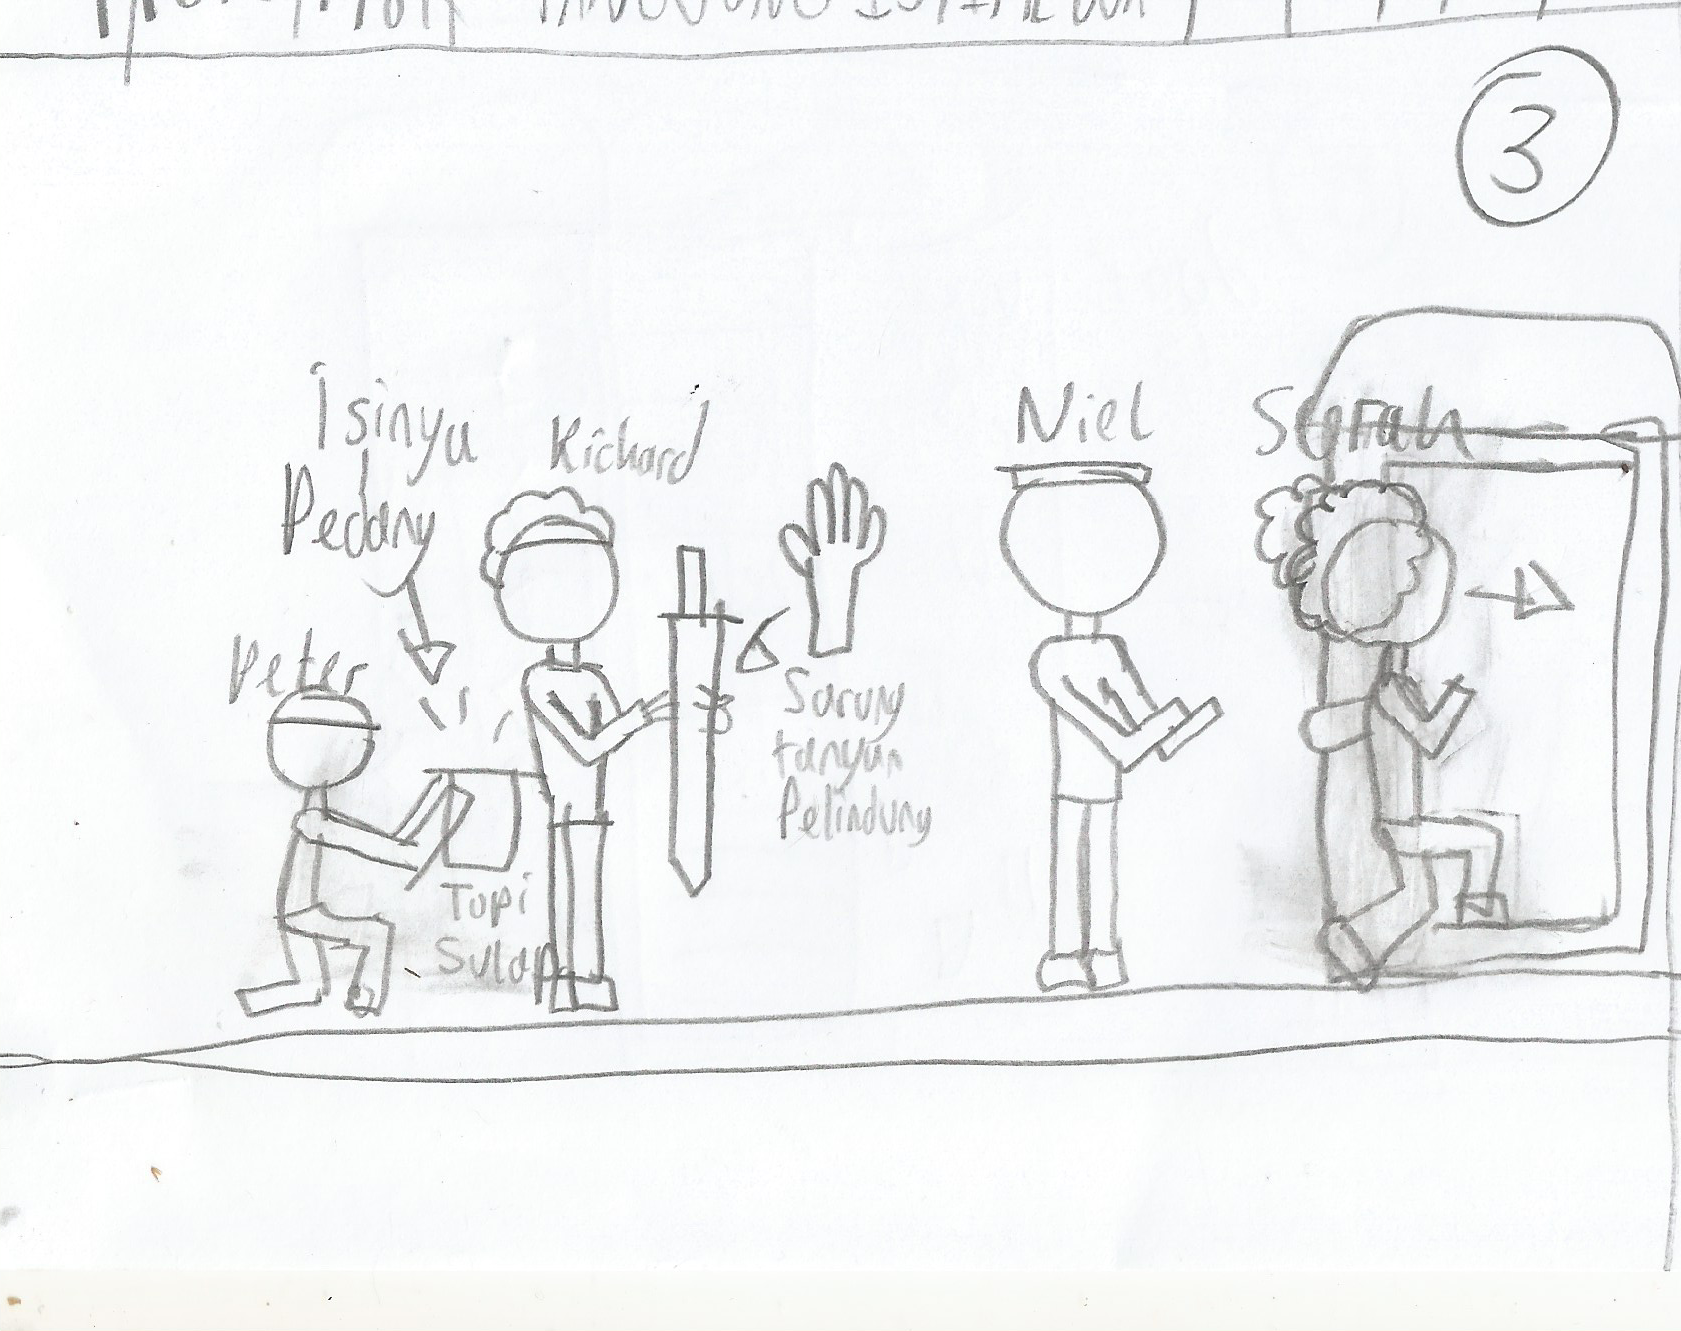 3
Isinya
Pedang
Richard
Niel
Peter
Sarung
tangan
Pelindung
Topi
Sulap